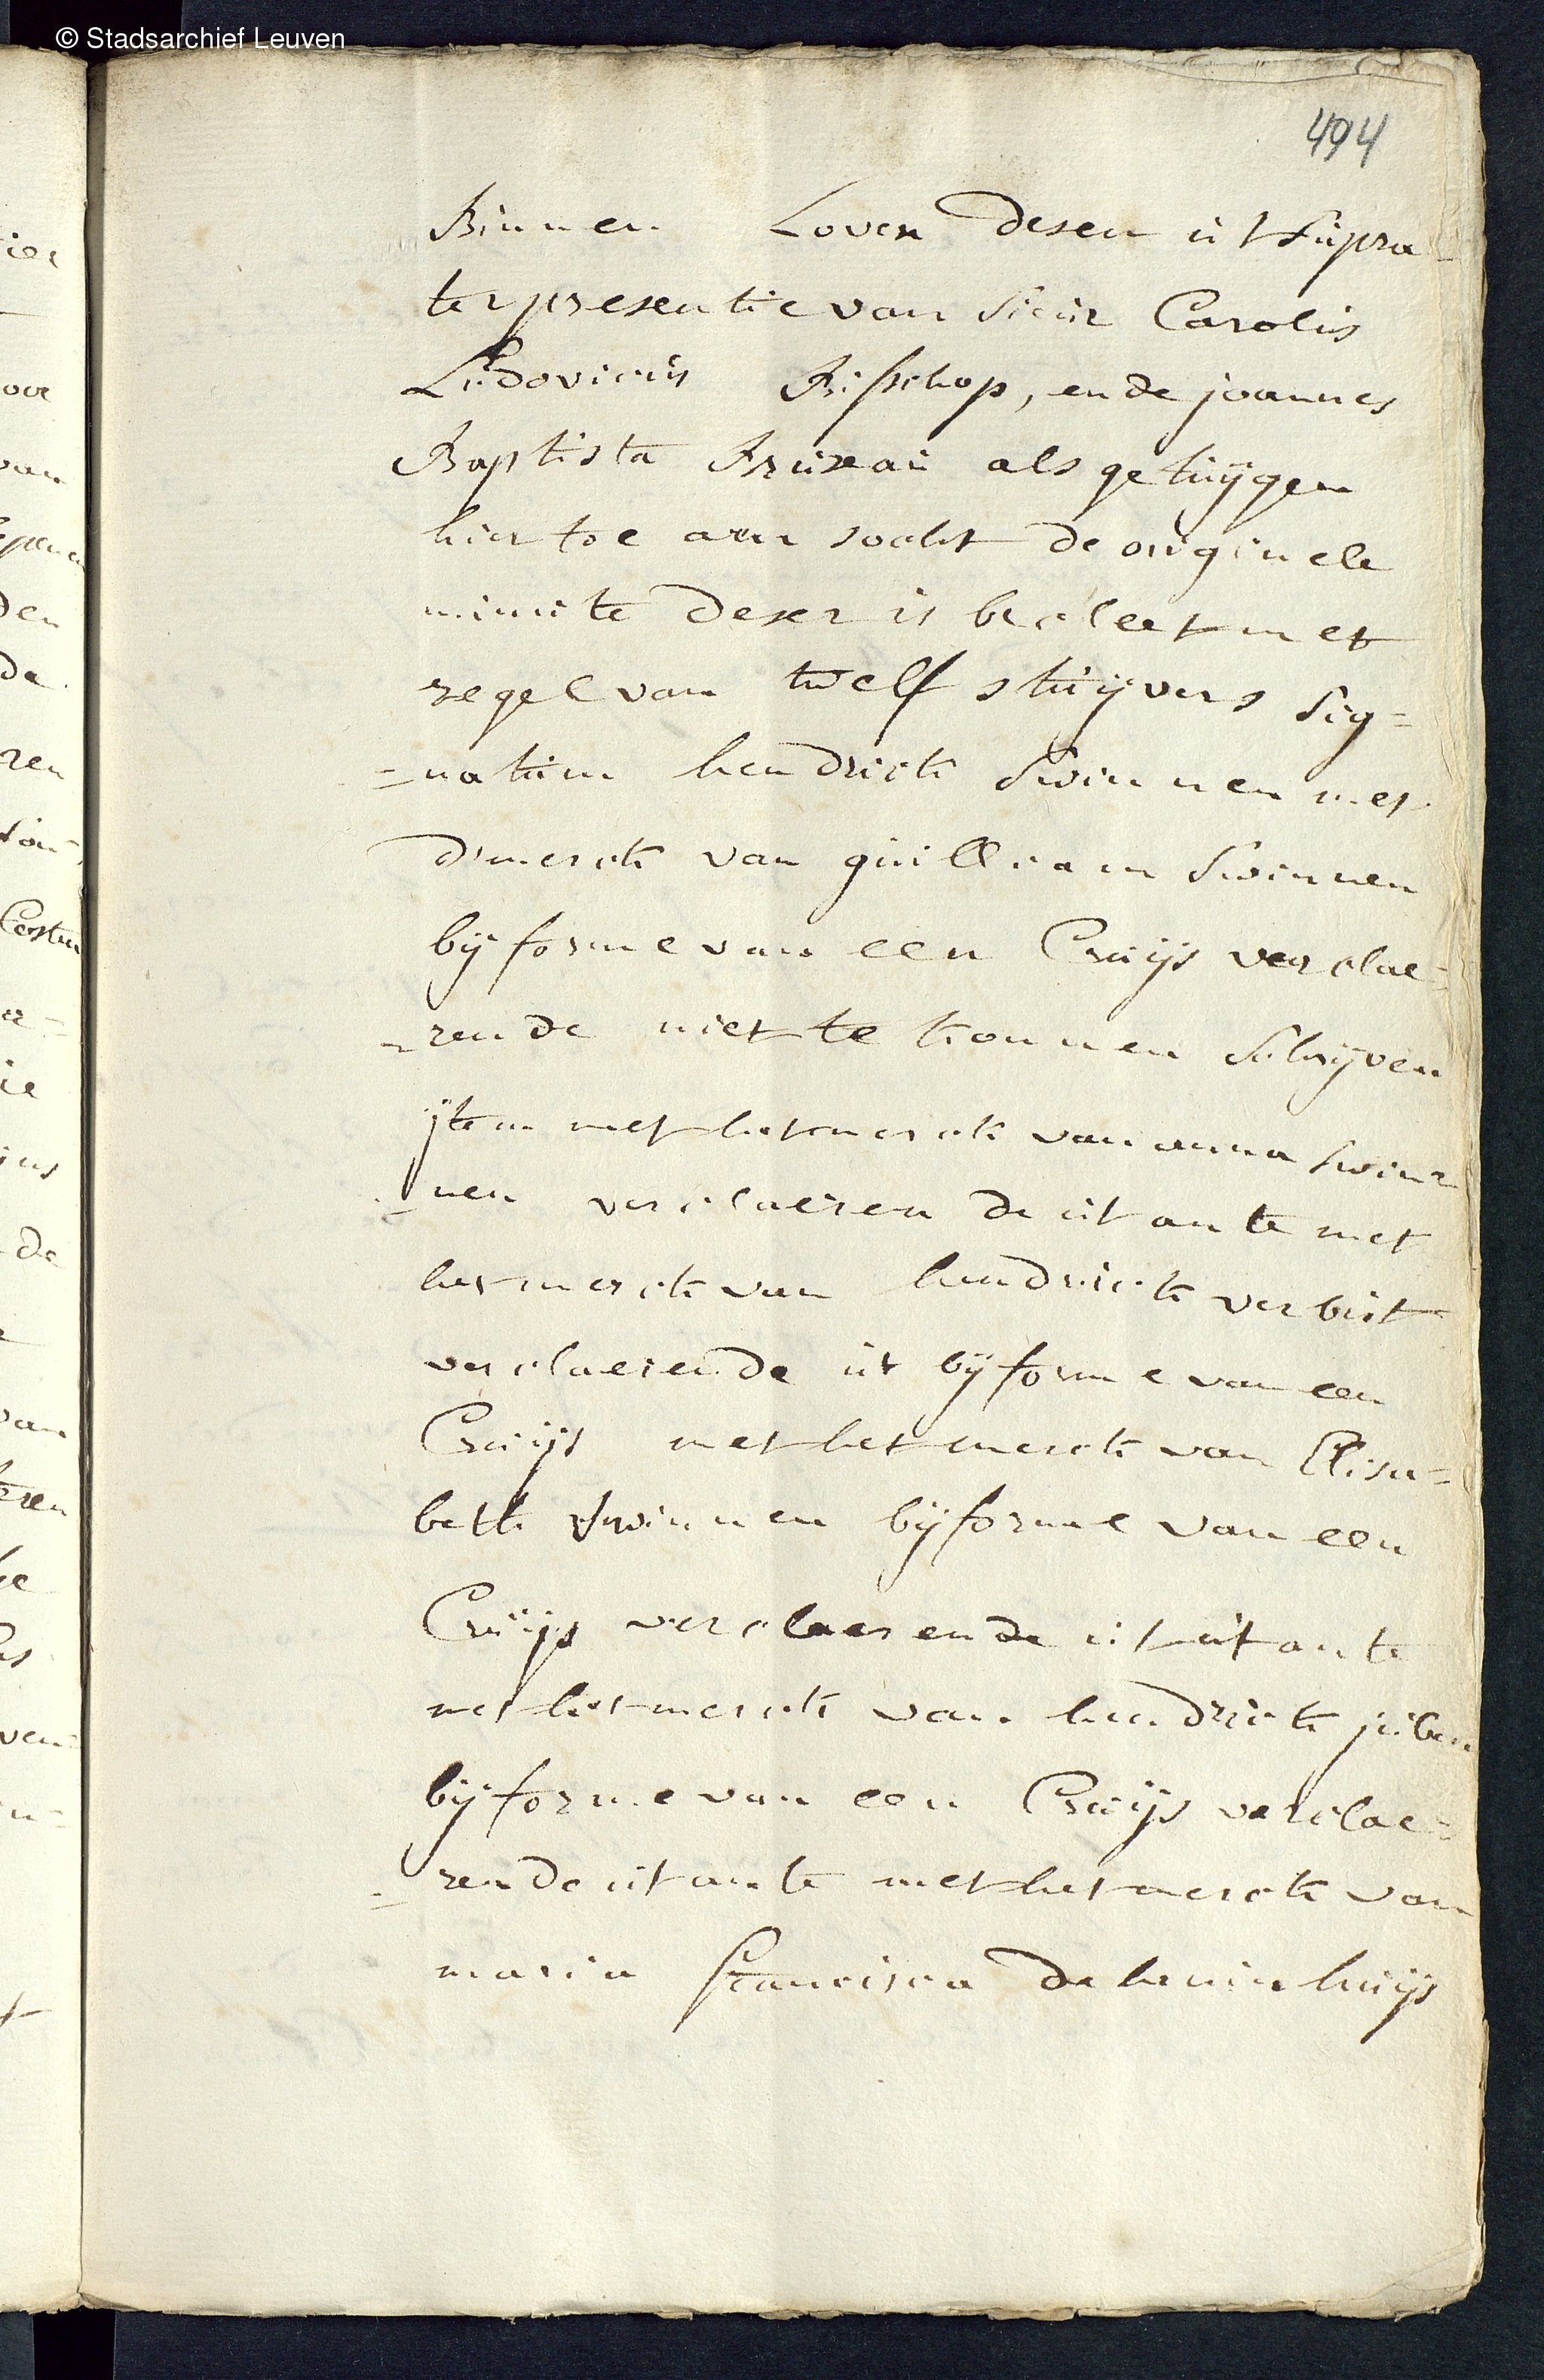 © Stadsarchief Leuven
494
Binnen Loven desen ut supra
ter presentie van Sieur Carolus
Ludovicus Bisschop, ende joannes
Baptista Bruxau als getuijgen
hier toe aensocht de originele
minute deser is becleet met
zegel van twelf stuijvers Sig=
=natum hendrick Swinnen met
d'merck van guilliam Swinnen
bij forme van een Cruijs verclae=
=rende niet te konnen Schrijven
ijtem met het merck van anna Swin=
=nen verclaeren de ut ante met
het merck van hendrick verbist
verclaerende ut bij forme van een
Cruijs met het merck van Elisa=
beth Swinnen bij forme van een
Cruijs verclaerende ut ut ante
met het merck van hendrick
bij forme van een Cruijs verclae=
=rende ut ante met het merck van
maria francisca